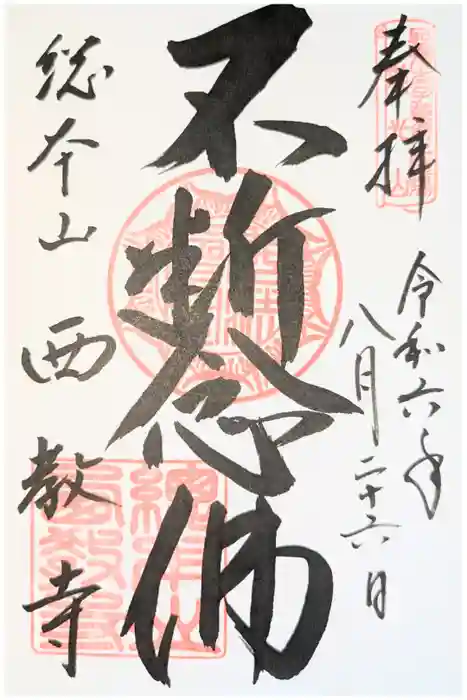 奉拝
令和六年
八月二十六日
不断念仏
総本山 西教寺